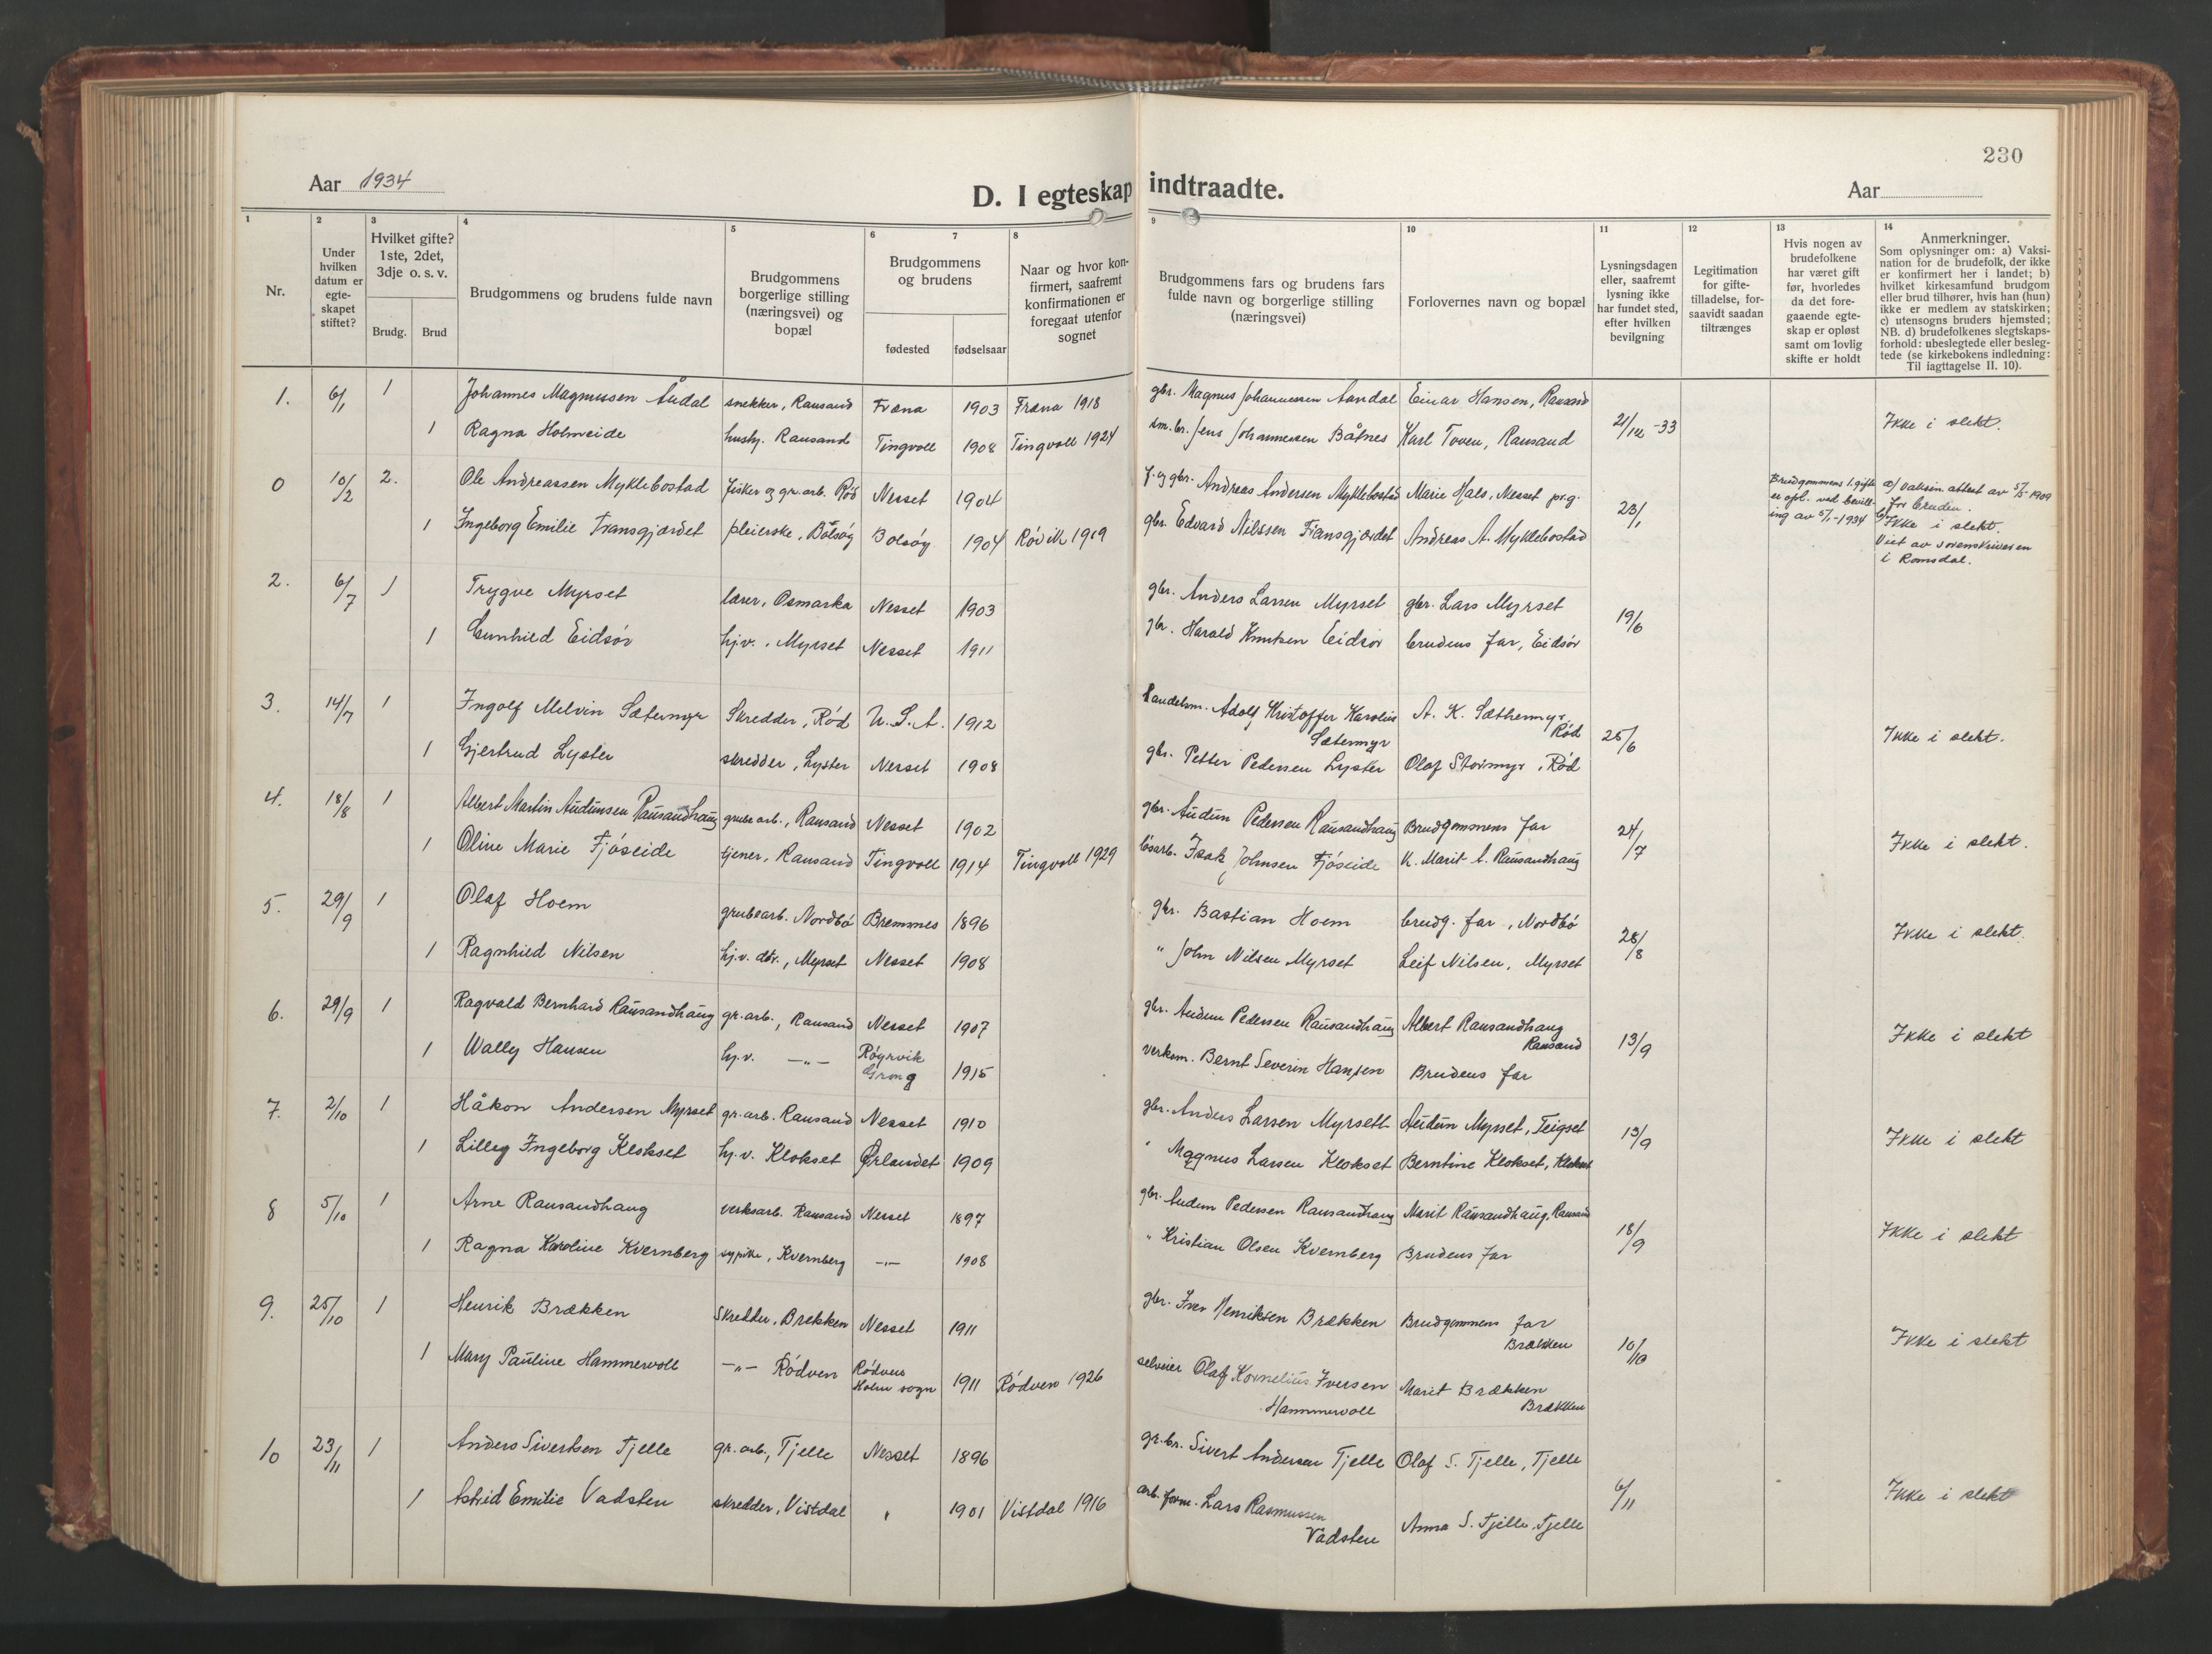 230
Aar 1934
D. I egteskap indtraadte.
Aar
1 2 3 4 5 6 7 8 9 10 11 12 13 14
Nr.
Under hvilken datum er egte-skapet stiftet?
Hvilket gifte? 1ste, 2det, 3dje o. s. v.
Brudg. Brud
Brudgommens og brudens fulde navn
Brudgommens borgerlige stilling (næringsvei) og bopæl
Brudgommens og brudens
fødested fødselsaar
Naar og hvor kon-firmert, saafremt konfirmationen er foregaat utenfor sognet
Brudgommens fars og brudens fars fulde navn og borgerlige stilling (næringsvei)
Forlovernes navn og bopæl
Lysningsdagen eller, saafremt lysning ikke har fundet sted, efter hvilken bevilgning
Legitimation for gifte-tilladelse, for-saavidt saadan tiltrænges
Hvis nogen av brudefolkene har været gift før, hvorledes da det fore-gaaende egte-skap er opløst samt om lovlig skifte er holdt
Anmerkninger.
Som oplysninger om: a) Vaksi-nation for de brudefolk, der ikke er konfirmert her i landet; b) hvilket kirkesamfund brudgom eller brud tilhører, hvis han (hun) ikke er medlem av statskirken; c) utensogns bruders hjemsted; NB. d) brudefolkenes slegtskaps-forhold: ubeslegtede eller besleg-tede (se kirkebokens indledning: Til iagttagelse II. 10).
1. 6/1 1 Johannes Magnussen Åudal snekker, Rausand Fræna 1903 Fræna 1918 gbr. Magnus Johannessen Aandal Einar Hansen, Rausand 21/12 -33 Ikke i slekt.
1 Ragna Holmeide hush. Rausand Tingvoll 1908 Tingvoll 1924 sm.br. Jens Johannessen Båtnes Karl Toven, Rausand
0 10/2 2. Ole Andreassen Myklebostad fisker og gr.arb. Rød Nesset 1904 f. og gbr. Andreas Andersen Myklebostad Marie Hals, Nesset pr.g. 23/1 Brudgommens 1. gifte er opl. ved bevill-ing av 5/1-1934 a) Vaksin. attest av 5/5 1909 for bruden.
1 Ingeborg Emilie Fransgjærdet pleierske, Bolsøy Bolsøy 1904 Røvik 1919 gbr. Edvard Nilssen Fransgjærdet Andreas A. Myklebostad Ikke i slekt.
Viet av sorenskriveren
i Romsdal.
2. 6/7 1 Trygve Myrset lærer, Osmarka Nesset 1903 gbr. Anders Larsen Myrset gbr. Lars Myrset 19/6
1 Gunhild Eidsør hj.v., Myrset Nesset 1911 gbr. Harald Knutsen Eidsør brudens far, Eidsør
3. 14/7 1 Ingolf Melvin Sætermyr Skredder, Rød U. S. A. 1912 Handelsm. Adolf Kristoffer Karolius Sætermyr A. K. Sæthermyr, Rød 25/6 Ikke i slekt.
1 Gjertrud Lyster skredder, Lyster Nesset 1908 gbr. Petter Pedersen Lyster Olaf Stormyr, Rød
4. 18/8 1 Albert Martin Audunsen Rausandhaug grubearb., Rausand Nesset 1902 gbr. Audun Pedersen Rausandhaug Brudgommens far 24/7 Ikke i slekt.
1 Oline Marie Fjøseide tjener, Rausand Tingvoll 1914 Tingvoll 1929 løsarb. Isak Johnsen Fjøseide K. Marit A. Rausandhaug
5. 29/9 1 Olaf Hoem grubearb. Nordbø Bremnes 1896 gbr. Bastian Hoem brudg. far, Nordbø 28/8 Ikke i slekt.
1 Ragnhild Nilsen hj.v. dtr., Myrset Nesset 1908 " John Nilsen Myrset Leif Nilsen, Myrset
6. 29/9 1 Ragvald Bernhard Rausandhaug gr.arb., Rausand Nesset 1907 gbr. Audun Pedersen Rausandhaug Albert Rausandhaug Rausand 13/9 Ikke i slekt
1 Wally Hansen hj.v. —"— Røyrvik Grong 1915 verksm. Bernt Severin Hansen Brudens far
7. 2/10 1 Håkon Andersen Myrset gr.arb. Rausand Nesset 1910 gbr. Anders Larsen Myrsett Audun Myrset, Teigset 13/9 Ikke i slekt
1 Lilleg Ingeborg Klokset hj.v. Klokset Ørlandet 1909 " Magnus Larsen Klokset Berntine Klokset, Klokset
8 5/10 1 Arne Rausandhaug verksarb. Rausand Nesset 1897 gbr. Audun Pedersen Rausandhaug Marit Rausandhaug, Rausand 18/9 Ikke i slekt
1 Ragna Karoline Kvernberg sypike, Kvernberg —"— 1908 " Kristian Olsen Kvernberg Brudens far
9. 25/10 1 Henrik Brækken Skredder, Brekken Nesset 1911 gbr. Iver Henriksen Brækken Brudgommens far Brækken 10/10 Ikke i slekt
1 Mary Pauline Hammervoll —"— Rødven Rødven Holm sogn 1911 Rødven 1926 selveier Olaf Kornelius Iversen Hammervoll Marit Brækken Brækken
10 23/11 1 Anders Sivertsen Tjelle gr.arb., Tjelle Nesset 1896 gr.br. Sivert Andersen Tjelle Olaf S. Tjelle, Tjelle 6/11 Ikke i slekt
1 Astrid Emilie Vadsten skredder, Vistdal " 1901 Vistdal 1916 arb.form. Lars Rasmussen Vadsten Anna S. Tjelle, Tjelle